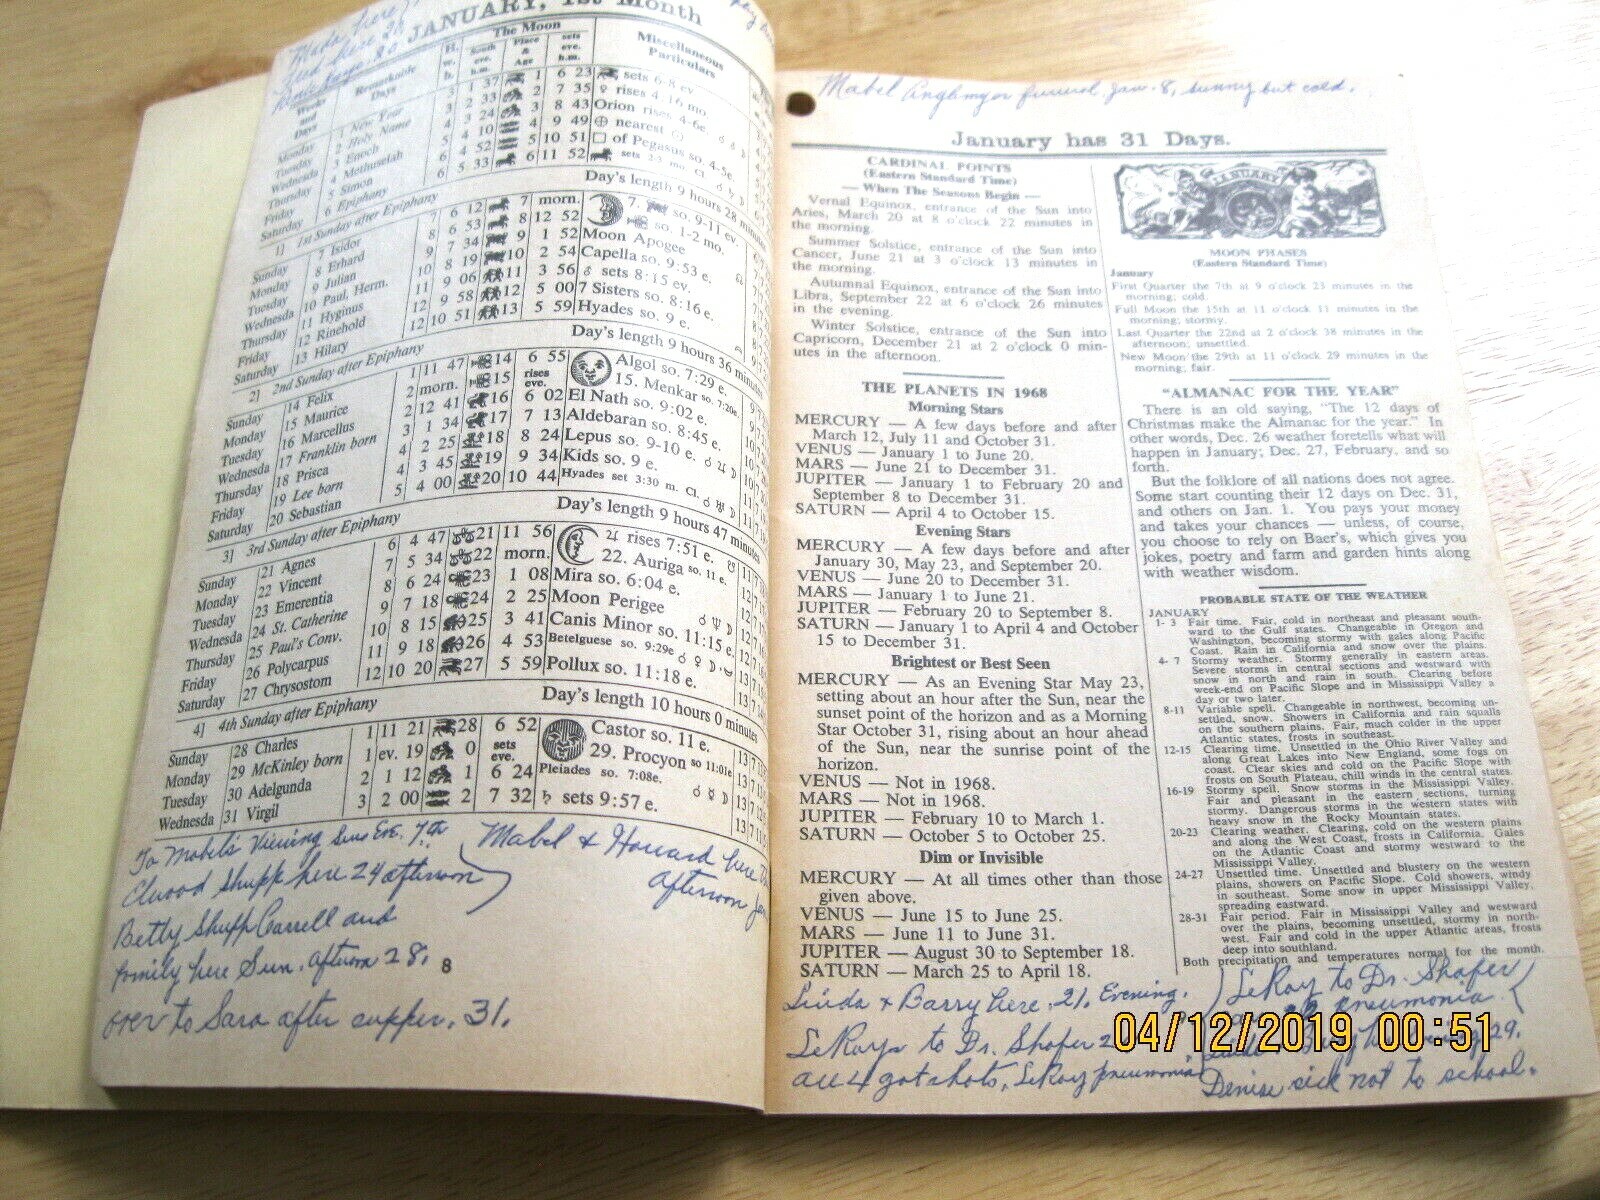 JANUARY, 1st Month
Weeks and Days
Remarkable Days
The Moon
South eve. h.m.
Place & Age
sets eve. h.m.
Miscellaneous Particulars
Monday 1 New Year 3 1 37 1 6 23 sets 6-8 ev
Tuesday 2 Holy Name 3 2 33 2 7 35 ♀ rises 4:16 mo.
Wednesda 3 Enoch 4 3 24 3 8 43 Orion rises 4-6e.
Thursday 4 Methuselah 4 10 4 9 49 ⊕ nearest ☉
Friday 5 Simon 4 52 5 10 51 □ of Pegasus so. 4-5e.
Saturday 6 Epiphany 6 5 33 6 11 52
1] 1st Sunday after Epiphany Day's length 9 hours 28 minutes
Sunday 7 Isidor 7 6 12 7 morn. 7. so. 9-11 ev.
Monday 8 Erhard 8 6 53 8 12 52 so. 1-2 mo.
Tuesday 9 Julian 9 7 34 9 1 52 Moon Apogee
Wednesda 10 Paul, Herm. 10 8 19 10 2 54 Capella so. 9:53 e.
Thursday 11 Hyginus 11 9 06 11 3 56 ♂ sets 8:15 ev.
Friday 12 Rinehold 12 9 58 12 5 00 7 Sisters so. 8:16 e.
Saturday 13 Hilary 12 10 51 13 5 59 Hyades so. 9 e.
2] 2nd Sunday after Epiphany Day's length 9 hours 36 minutes
Sunday 14 Felix 1 11 47 14 6 55 Algol so. 7:29 e.
Monday 15 Maurice 2 morn. 15 rises eve. 15. Menkar so. 7:20e.
Tuesday 16 Marcellus 2 12 41 16 6 02 El Nath so. 9:02 e.
Wednesda 17 Franklin born 3 1 34 17 7 13 Aldebaran so. 8:45 e.
Thursday 18 Prisca 4 2 25 18 8 24 Lepus so. 9-10 e.
Friday 19 Lee born 4 3 45 19 9 34 Kids so. 9 e.
Saturday 20 Sebastian 5 4 00 20 10 44 Hyades set 3:30 m. Cl.
3] 3rd Sunday after Epiphany Day's length 9 hours 47 minutes
Sunday 21 Agnes 6 4 47 21 11 56 ♃ rises 7:51 e.
Monday 22 Vincent 7 5 34 22 morn. 22. Auriga so. 11 e.
Tuesday 23 Emerentia 8 6 24 23 1 08 Mira so. 6:04 e.
Wednesda 24 St. Catherine 9 7 18 24 2 25 Moon Perigee
Thursday 25 Paul's Conv. 10 8 15 25 3 41 Canis Minor so. 11:15 e.
Friday 26 Polycarpus 11 9 18 26 4 53 Betelguese so. 9:29e
Saturday 27 Chrysostom 12 10 20 27 5 59 Pollux so. 11:18 e.
4] 4th Sunday after Epiphany Day's length 10 hours 0 minutes
Sunday 28 Charles 1 11 21 28 6 52 Castor so. 11 e.
Monday 29 McKinley born 1 ev. 19 0 sets eve. 29. Procyon so. 11:01e
Tuesday 30 Adelgunda 2 1 12 1 6 24 Pleiades so. 7:08e.
Wednesda 31 Virgil 3 2 00 2 7 32 ♄ sets 9:57 e.
To Mabel's Viewing Sun Eve. 7th
Elwood Shupp here 24 afternoon
Betty Shupp Carrell and
family here Sun. afternoon 28.
over to Sara after supper. 31.
Mabel & Howard here
afternoon Jan
8
Mabel Anglemyer funeral Jan. 8, sunny but cold.
January has 31 Days.
CARDINAL POINTS
(Eastern Standard Time)
— When The Seasons Begin —
Vernal Equinox, entrance of the Sun into
Aries, March 20 at 8 o'clock 22 minutes in
the morning.
Summer Solstice, entrance of the Sun into
Cancer, June 21 at 3 o'clock 13 minutes in
the morning.
Autumnal Equinox, entrance of the Sun into
Libra, September 22 at 6 o'clock 26 minutes
in the evening.
Winter Solstice, entrance of the Sun into
Capricorn, December 21 at 2 o'clock 0 min-
utes in the afternoon.
THE PLANETS IN 1968
Morning Stars
MERCURY — A few days before and after
March 12, July 11 and October 31.
VENUS — January 1 to June 20.
MARS — June 21 to December 31.
JUPITER — January 1 to February 20 and
September 8 to December 31.
SATURN — April 4 to October 15.
Evening Stars
MERCURY — A few days before and after
January 30, May 23, and September 20.
VENUS — June 20 to December 31.
MARS — January 1 to June 21.
JUPITER — February 20 to September 8.
SATURN — January 1 to April 4 and October
15 to December 31.
Brightest or Best Seen
MERCURY — As an Evening Star May 23,
setting about an hour after the Sun, near the
sunset point of the horizon and as a Morning
Star October 31, rising about an hour ahead
of the Sun, near the sunrise point of the
horizon.
VENUS — Not in 1968.
MARS — Not in 1968.
JUPITER — February 10 to March 1.
SATURN — October 5 to October 25.
Dim or Invisible
MERCURY — At all times other than those
given above.
VENUS — June 15 to June 25.
MARS — June 11 to June 31.
JUPITER — August 30 to September 18.
SATURN — March 25 to April 18.
JANUARY
MOON PHASES
(Eastern Standard Time)
January
First Quarter the 7th at 9 o'clock 23 minutes in the
morning; cold.
Full Moon the 15th at 11 o'clock 11 minutes in the
morning; stormy.
Last Quarter the 22nd at 2 o'clock 38 minutes in the
afternoon; unsettled.
New Moon the 29th at 11 o'clock 29 minutes in the
morning; fair.
"ALMANAC FOR THE YEAR"
There is an old saying, "The 12 days of
Christmas make the Almanac for the year." In
other words, Dec. 26 weather foretells what will
happen in January; Dec. 27, February, and so
forth.
But the folklore of all nations does not agree.
Some start counting their 12 days on Dec. 31,
and others on Jan. 1. You pays your money
and takes your chances — unless, of course,
you choose to rely on Baer's, which gives you
jokes, poetry and farm and garden hints along
with weather wisdom.
PROBABLE STATE OF THE WEATHER
JANUARY
1- 3 Fair time. Fair, cold in northeast and pleasant south-
ward to the Gulf states. Changeable in Oregon and
Washington, becoming stormy with gales along Pacific
Coast. Rain in California and snow over the plains.
4- 7 Stormy weather. Stormy generally in eastern areas.
Severe storms in central sections and westward with
snow in north and rain in south. Clearing before
week-end on Pacific Slope and in Mississippi Valley a
day or two later.
8-11 Variable spell. Changeable in northwest, becoming un-
settled, snow. Showers in California and rain squalls
on the southern plains. Fair, much colder in the upper
Atlantic states, frosts in southeast.
12-15 Clearing time. Unsettled in the Ohio River Valley and
along Great Lakes into New England, some fogs on
coast. Clear skies and cold on the Pacific Slope with
frosts on South Plateau, chill winds in the central states.
16-19 Stormy spell. Snow storms in the Mississippi Valley.
Fair and pleasant in the eastern sections, turning
stormy. Dangerous storms in the western states with
heavy snow in the Rocky Mountain states.
20-23 Clearing weather. Clearing, cold on the western plains
and along the West Coast, frosts in California. Gales
on the Atlantic Coast and stormy westward to the
Mississippi Valley.
24-27 Unsettled time. Unsettled and blustery on the western
plains, showers on Pacific Slope. Cold showers, windy
in southeast. Some snow in upper Mississippi Valley,
spreading eastward.
28-31 Fair period. Fair in Mississippi Valley and westward
over the plains, becoming unsettled, stormy in north-
west. Fair and cold in the upper Atlantic areas, frosts
deep into southland.
Both precipitation and temperatures normal for the month.
Linda & Barry here. 21. Evening.
LeRoys to Dr. Shafer 2
all 4 got shots, LeRoy pneumonia
LeRoy to Dr. Shafer
pneumonia
29.
Denise sick not to school.
04/12/2019 00:51